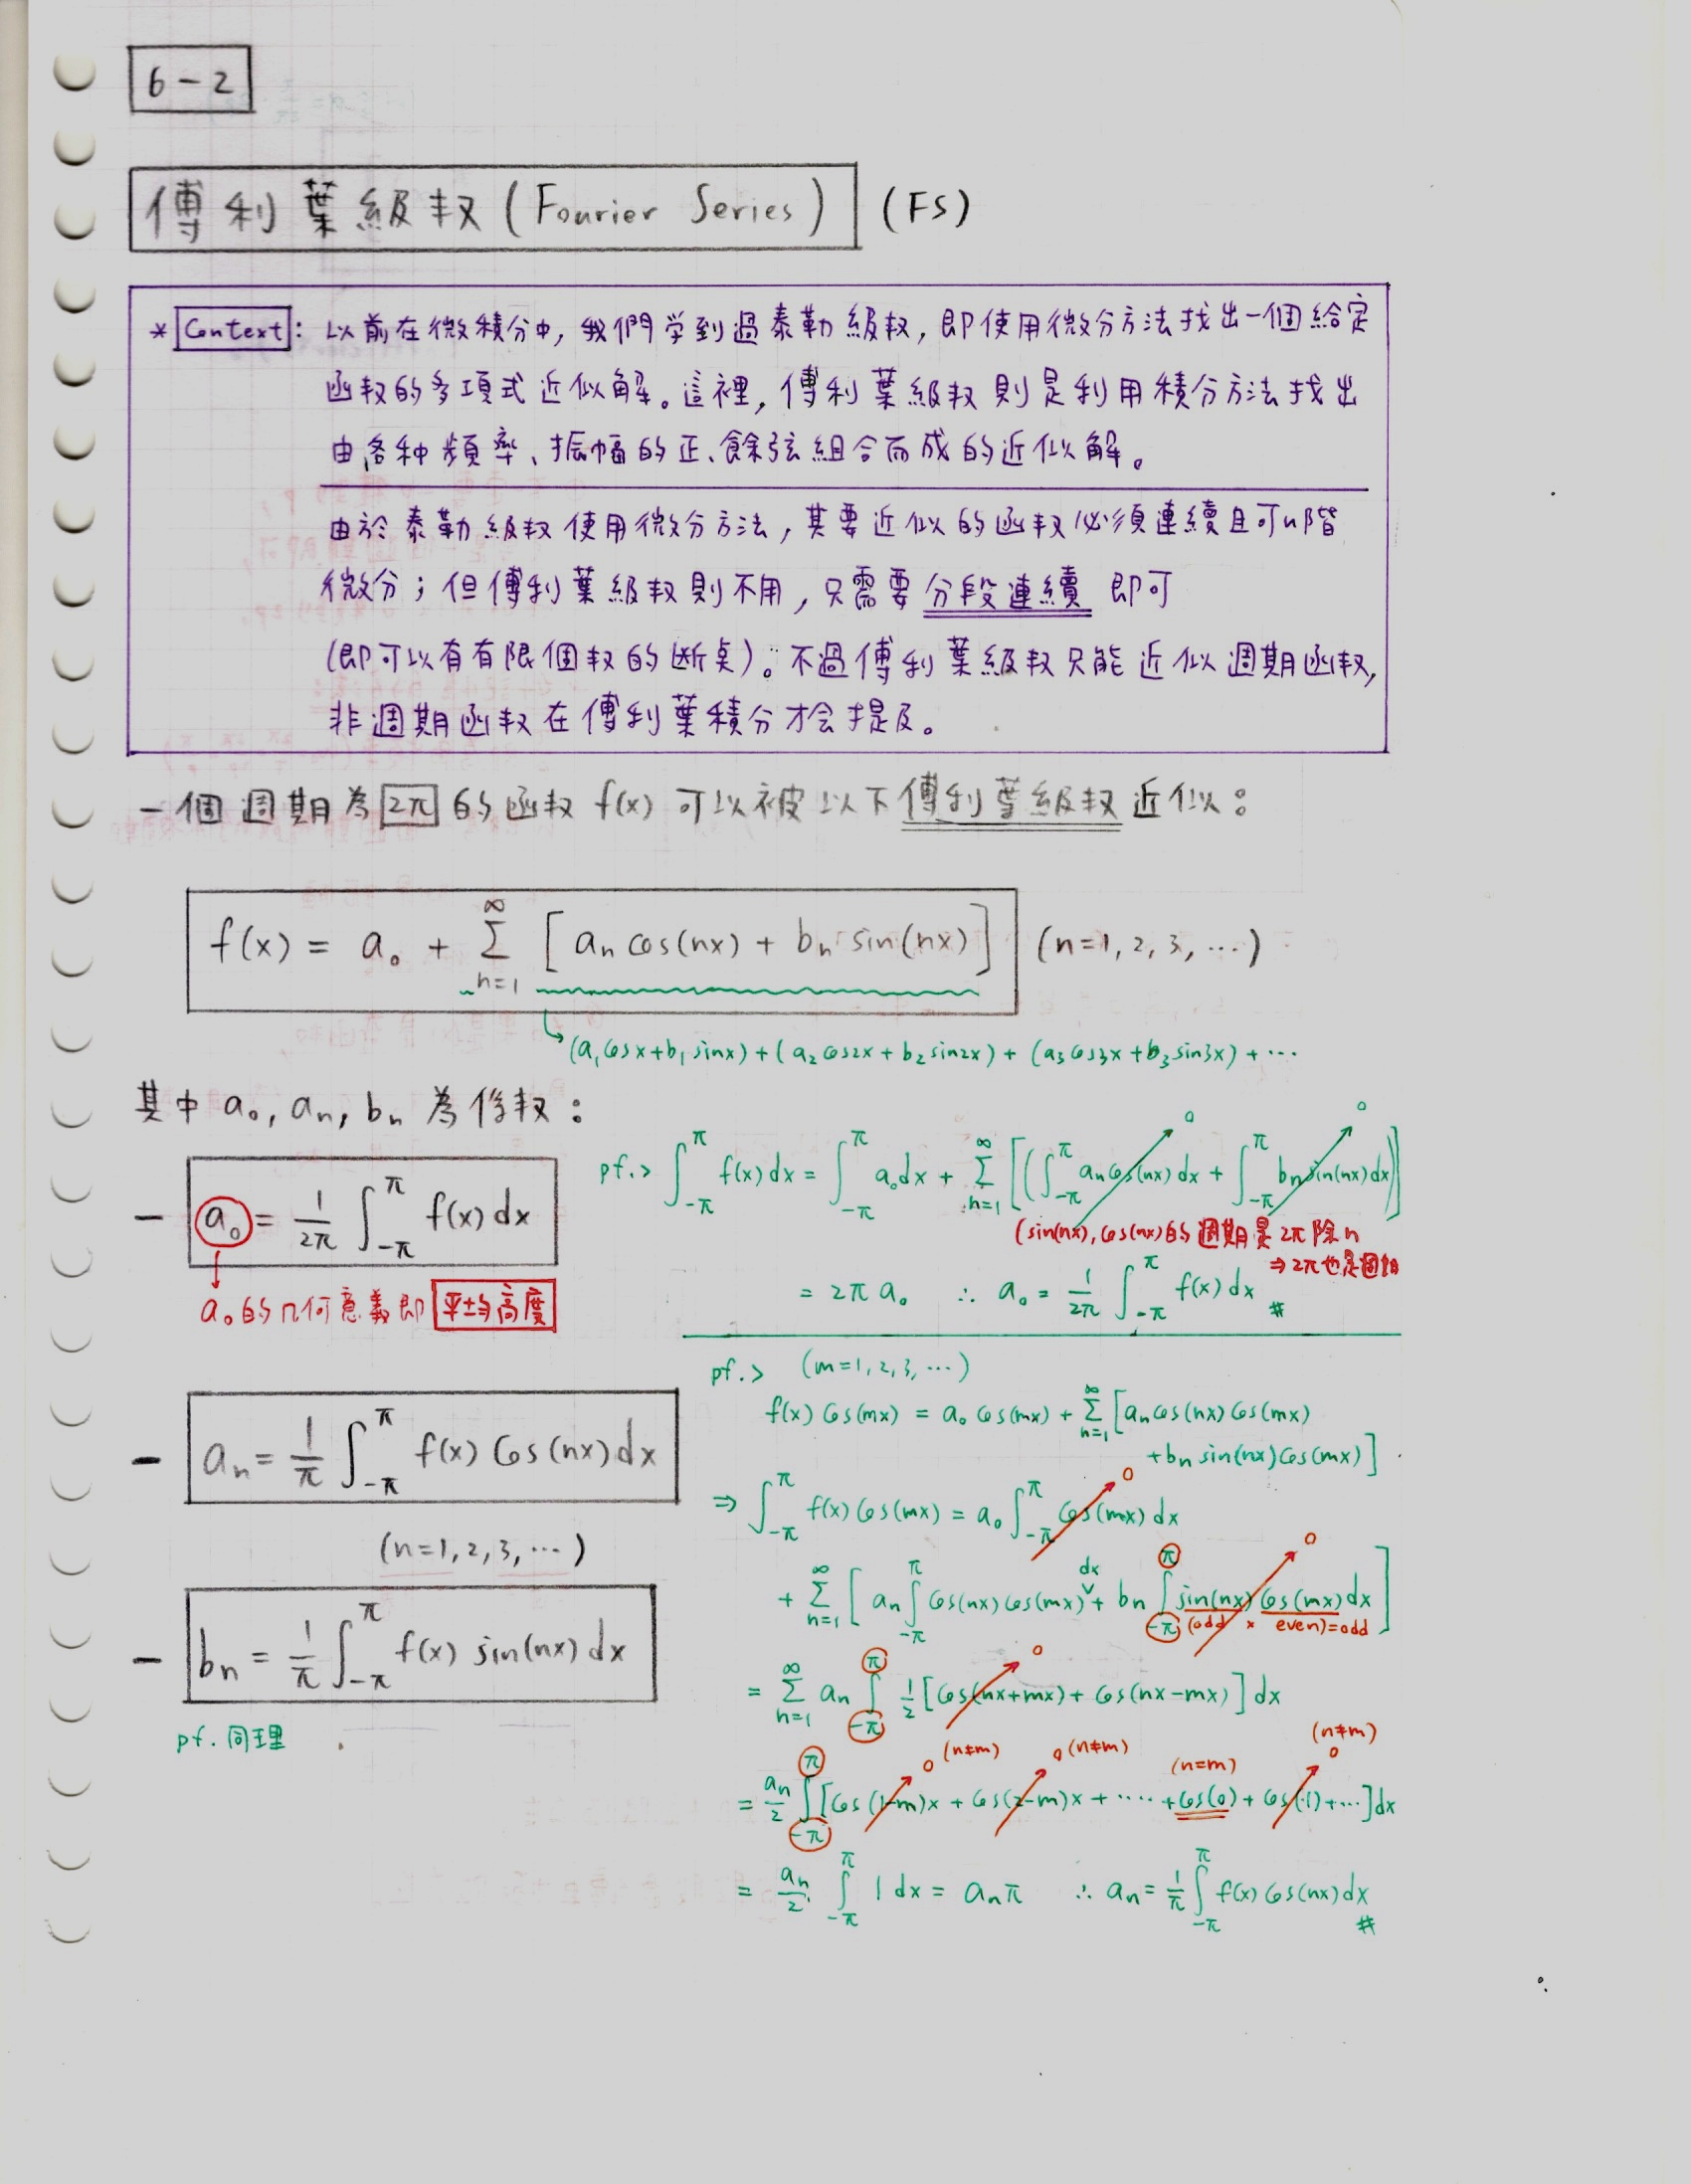 6-2
傅利葉級数(Fourier Series) (FS)
*Context: 以前在微積分中,我們学到過泰勒級数,即使用微分方法找出一個給定
函数的多項式近似解。這裡,傅利葉級数則是利用積分方法找出
由各种頻率、振幅的正、餘弦組合而成的近似解。
由於泰勒級数使用微分方法,其要近似的函数必須連續且可n階
微分;但傅利葉級数則不用,只需要分段連續即可
(即可以有有限個数的断点)。不過傅利葉級数只能近似週期函数,
非週期函数在傅利葉積分才会提及。
一個週期為2π的函数f(x)可以被以下傅利葉級数近似:
f(x) = a₀ + Σ_{n=1}^{∞} [aₙ cos(nx) + bₙ sin(nx)] (n=1, 2, 3, ⋯)
↳(a₁cosx+b₁sinx)+(a₂cos2x+b₂sin2x)+(a₃cos3x+b₃sin3x)+⋯
其中 a₀, aₙ, bₙ 為係数:
- a₀ = 1/2π ∫_{-π}^{π} f(x)dx
a₀的几何意義即平均高度
pf.> ∫_{-π}^{π} f(x)dx = ∫_{-π}^{π} a₀dx + Σ_{n=1}^{∞} [(∫_{-π}^{π} aₙcos(nx)dx + ∫_{-π}^{π} bₙsin(nx)dx)] 0 0
(sin(nx), cos(nx)的週期是2π除n
⇒2π也是週期
= 2πa₀ ∴ a₀ = 1/2π ∫_{-π}^{π} f(x)dx #
- aₙ = 1/π ∫_{-π}^{π} f(x) cos(nx)dx
(n=1, 2, 3, ⋯)
- bₙ = 1/π ∫_{-π}^{π} f(x) sin(nx)dx
pf. 同理
pf.> (m=1, 2, 3, ⋯)
f(x)cos(mx) = a₀cos(mx) + Σ_{n=1}^{∞} [aₙcos(nx)cos(mx)
+bₙsin(nx)cos(mx)]
⇒ ∫_{-π}^{π} f(x)cos(mx) = a₀ ∫_{-π}^{π} cos(mx)dx 0
+ Σ_{n=1}^{∞} [aₙ ∫_{-π}^{π} cos(nx)cos(mx)dx + bₙ ∫_{-π}^{π} sin(nx)cos(mx)dx] 0
(odd × even)=odd
= Σ_{n=1}^{∞} aₙ ∫_{-π}^{π} 1/2 [cos(nx+mx) + cos(nx-mx)]dx 0
0 (n≠m) 0 (n≠m) (n=m) 0 (n≠m)
= aₙ/2 ∫_{-π}^{π} [cos(1-m)x + cos(2-m)x + ⋯⋯ + cos(0) + cos(-1) + ⋯]dx
= aₙ/2 ∫_{-π}^{π} 1dx = aₙπ ∴ aₙ = 1/π ∫_{-π}^{π} f(x)cos(nx)dx #